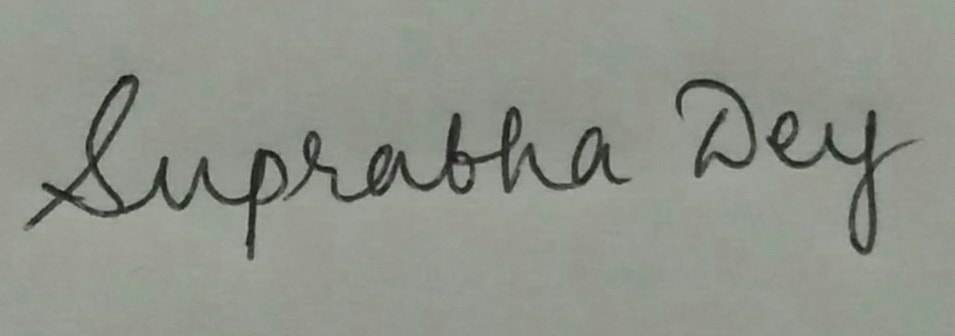 Suprabha Dey